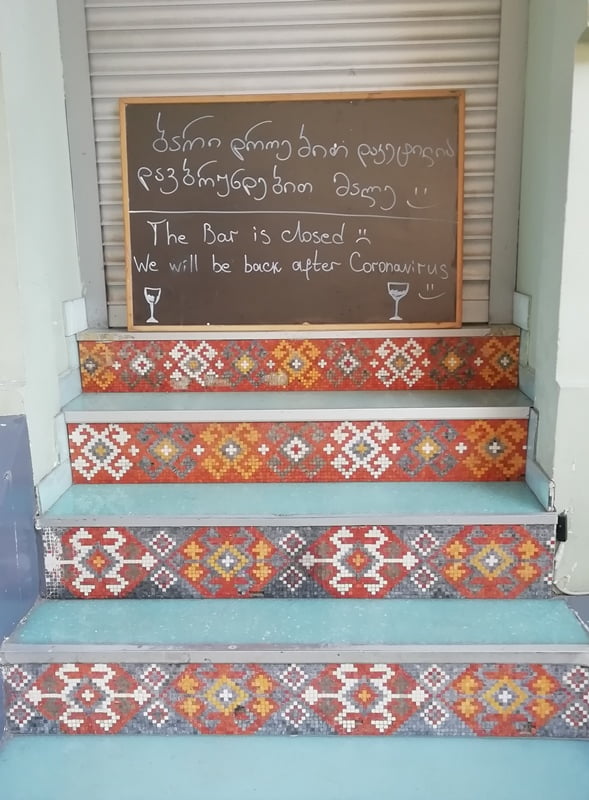 ბარი დროებით დაკეტილია
დავბრუნდებით მალე :)
The Bar is closed :(
We will be back after Coronavirus
:)